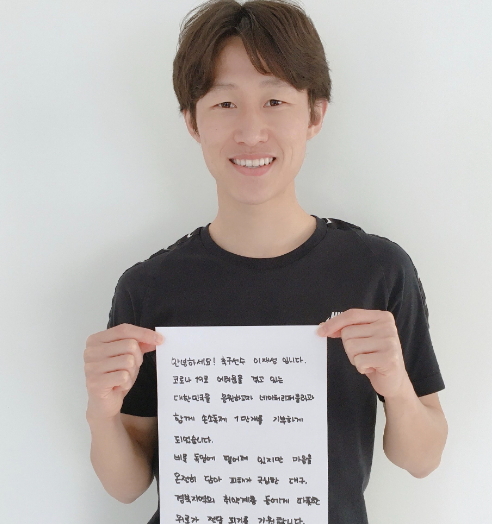 안녕하세요! 축구선수 이재성 입니다.
코로나 19로 어려움을 겪고 있는
대한민국을 응원하고자 네이처리퍼블릭과
함께 손소독제 1만개를 기부하게
되었습니다.
비록 독일에 떨어져 있지만 마음을
온전히 담아 피해가 극심한 대구,
경북지역의 취약계층 분들에게 따뜻한
위로가 전달 되기를 기원합니다.